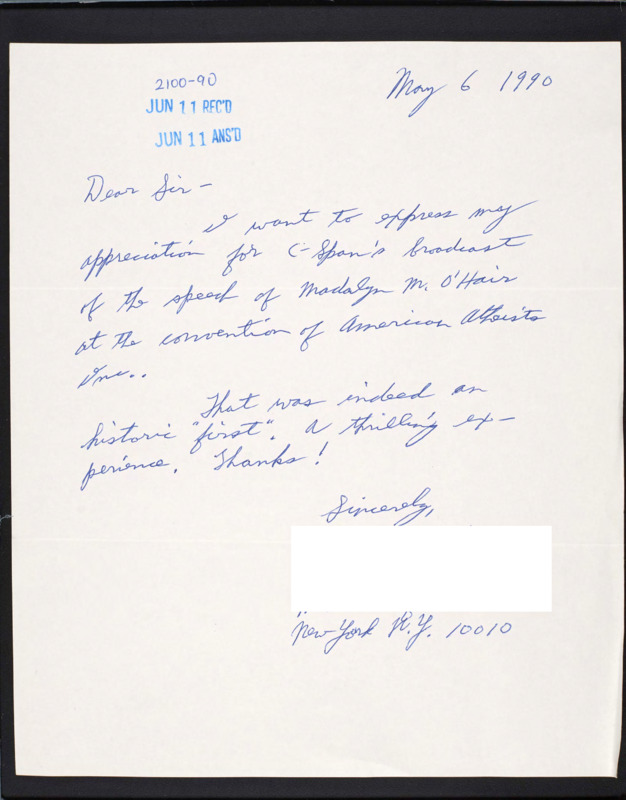 May 6 1990
2100-90
JUN 11 REC'D
JUN 11 ANS'D
Dear Sir -
I want to express my
appreciation for C-Span's broadcast
of the speech of Madalyn M. O'Hair
at the convention of American Atheists
Inc..
That was indeed an
historic "first". A thrilling ex-
perience. Thanks!
Sincerely,
New York N.Y. 10010